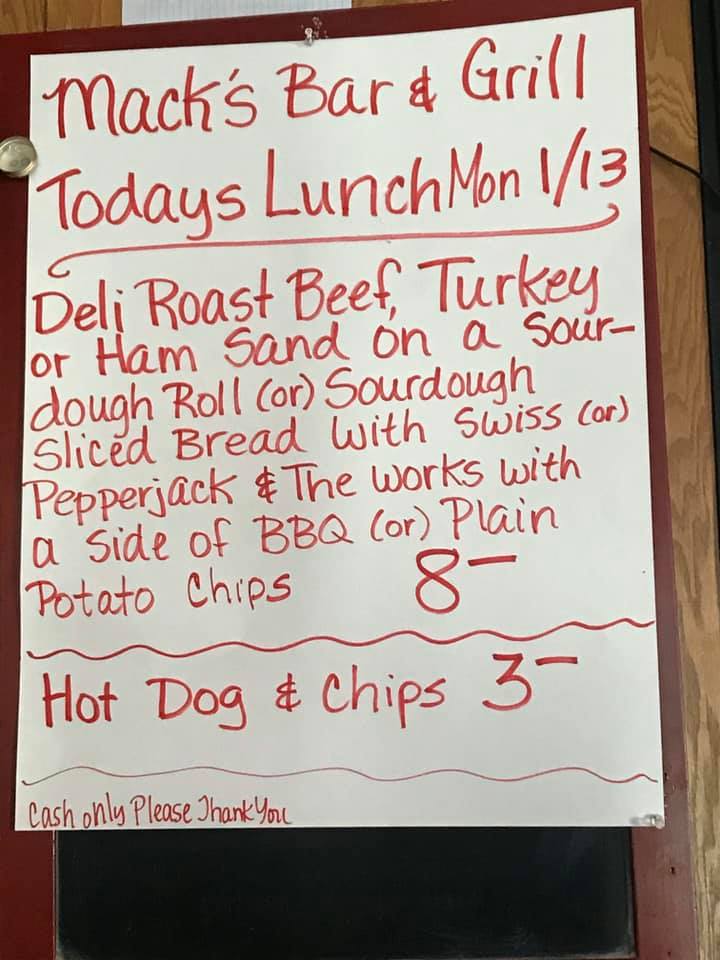 Mack's Bar & Grill
Todays Lunch Mon 1/13
Deli Roast Beef, Turkey
or Ham Sand on a Sour-
dough Roll (or) Sourdough
Sliced Bread with Swiss (or)
Pepperjack & The works with
a side of BBQ (or) Plain
Potato Chips 8-
Hot Dog & Chips 3-
Cash only Please Thank You